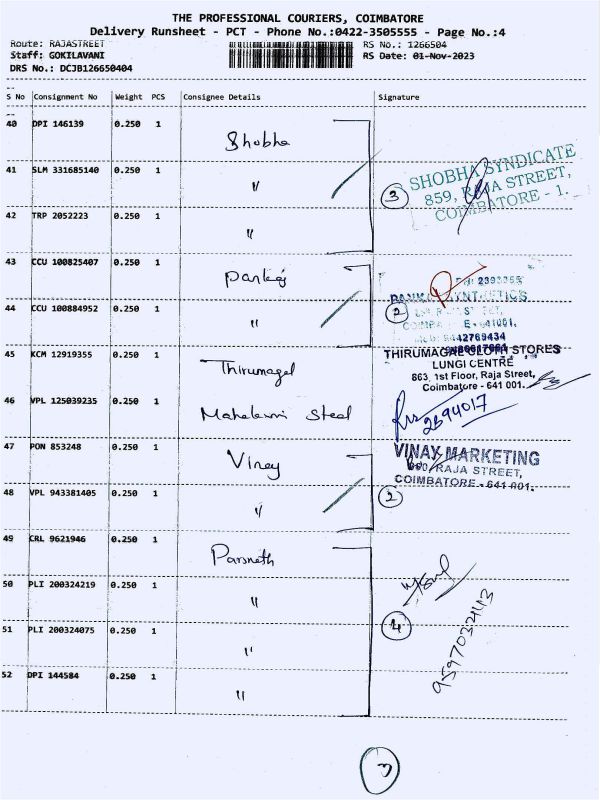 THE PROFESSIONAL COURIERS, COIMBATORE
Delivery Runsheet - PCT - Phone No.:0422-3505555 - Page No.:4
Route: RAJASTREET RS No.: 1266504
Staff: GOKILAVANI RS Date: 01-Nov-2023
DRS No.: DCJB126650404
S No Consignment No Weight PCS Consignee Details Signature
40 DPI 146139 0.250 1 Shobha
41 SLM 331685140 0.250 1 "
3 SHOBHA SYNDICATE
859, RAJA STREET,
COIMBATORE - 1.
42 TRP 2052223 0.250 1 "
43 CCU 100825407 0.250 1 Pankaj
44 CCU 100884952 0.250 1 "
2
45 KCM 12919355 0.250 1 Thirumagal
THIRUMAGAL CLOTH STORES
LUNGI CENTRE
863, 1st Floor, Raja Street,
Coimbatore - 641 001.
46 VPL 125039235 0.250 1 Mahalaxmi Steel
2394017
47 PON 853248 0.250 1 Vinay
VINAY MARKETING
RAJA STREET,
COIMBATORE - 641 001.
48 VPL 943381405 0.250 1 "
2
49 CRL 9621946 0.250 1 Parsnath
50 PLI 200324219 0.250 1 "
4
51 PLI 200324075 0.250 1 "
9597032443
52 DPI 144584 0.250 1 "